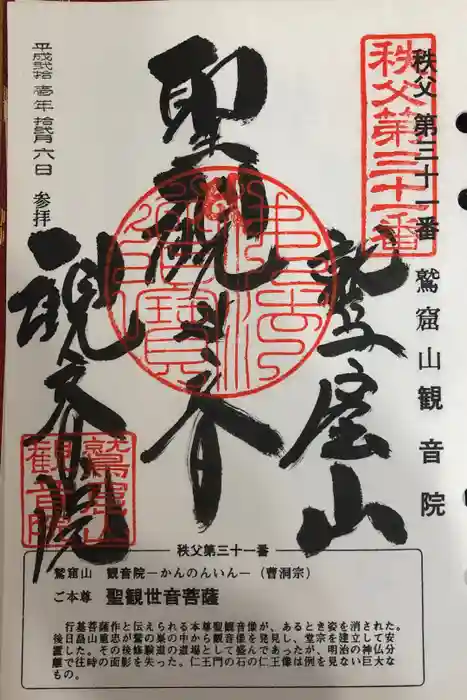 秩父 第三十一番 鷲窟山観音院
秩父第三十一番
鷲窟山
聖観世音
観音院
平成弐拾壱年拾弐月六日 参拝
佛法僧寶
鷲窟山観音院
秩父第三十一番
鷲窟山 観音院－かんのんいん－（曹洞宗）
ご本尊 聖観世音菩薩
行基菩薩作と伝えられる本尊聖観音像が、あるとき姿を消された。
後日畠山重忠が鷲の巣の中から観音像を発見し、堂宗を建立して安
置した。その後修験道の道場として盛んであったが、明治の神仏分
離で往時の面影を失った。仁王門の石の仁王像は例を見ない巨大な
もの。